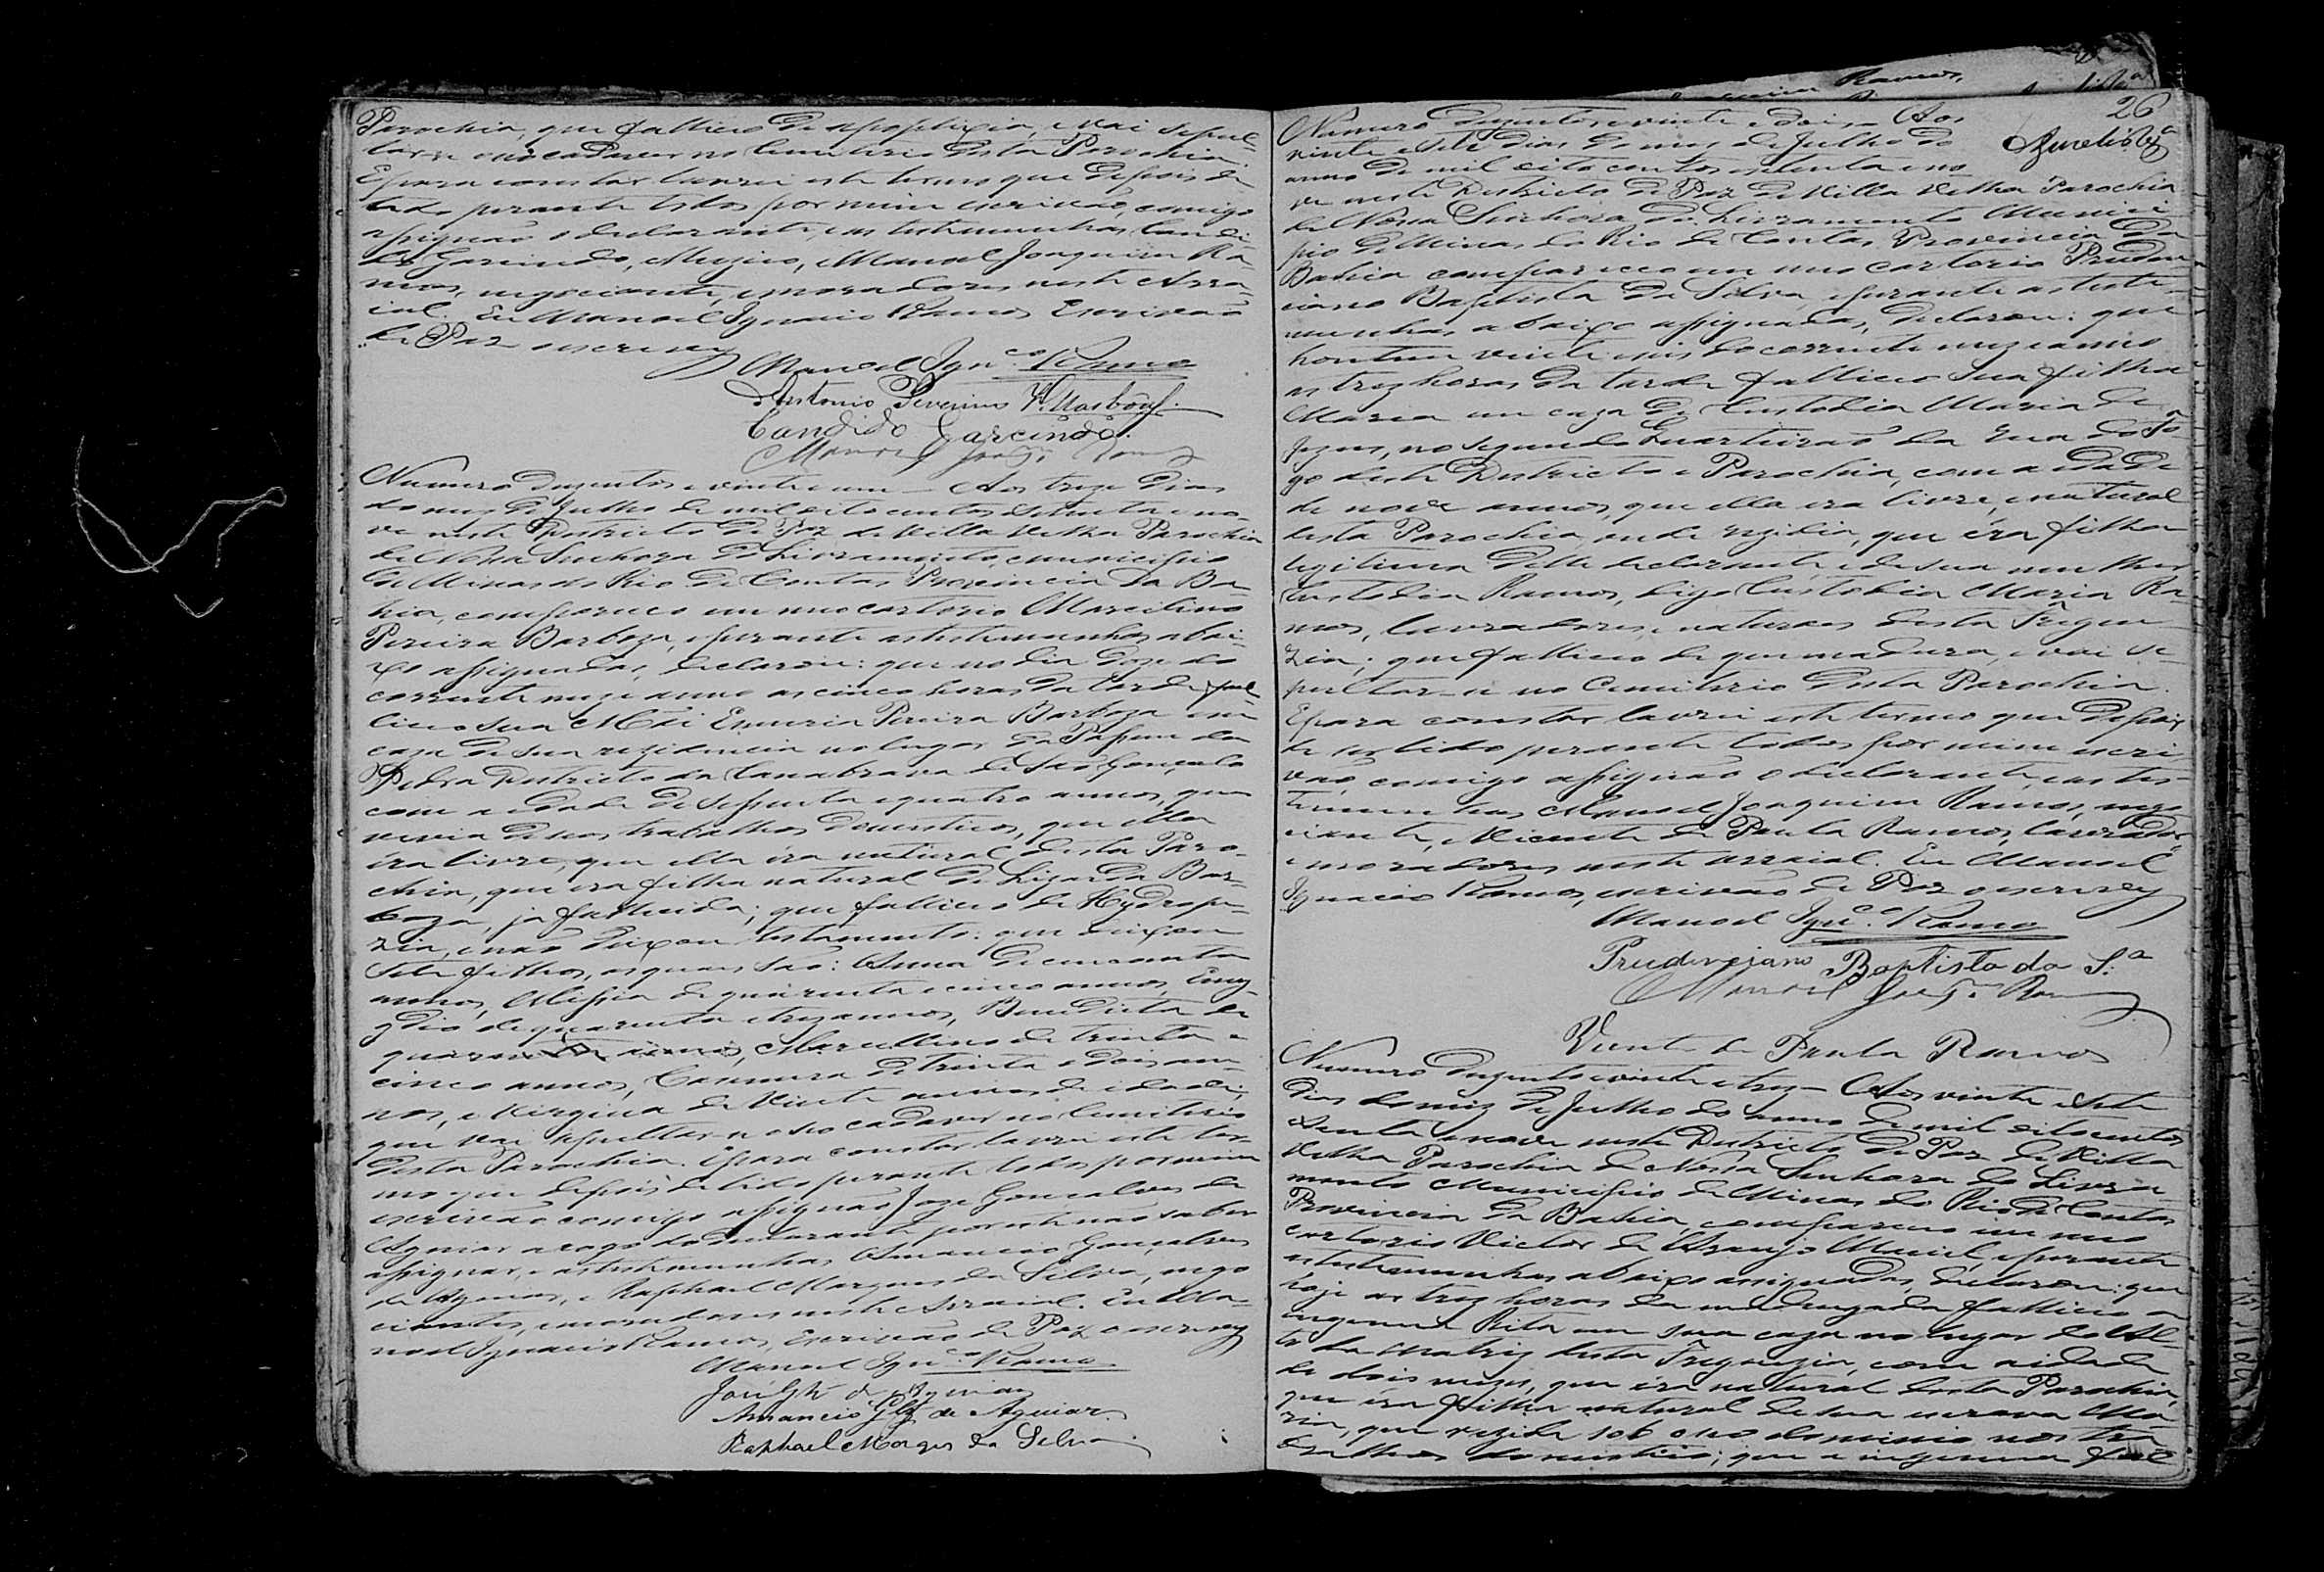 Parochia, que falliceo de apoplexia, e vai sepul-
tar-se o seo cadaver no Cemiterio desta Parochia.
E para constar lavrei este termo que depois de
lido perante todos por mim escrivão, comigo
assignão o declarante, e as testemunhas Candi-
do Garcindo, Muzico, e Manoel Joaquim Ra-
mos, negociante, e moradores neste Arra-
ial. Eu Manoel Ignacio Ramos Escrivão
de Paz o escrevy
Manoel Ign.co Ramos
Antonio Severino
Candido Garcindo.
Manoel Joaq.m Ramos
Numero duzentos e vinte e um — Aos treze dias
do mez de Julho de mil oito centos setenta e no-
ve neste Districto de Paz de Villa Velha Parochia
de Nossa Senhora do Livramento, municipio
de Minas do Rio de Contas Provincia da Ba-
hia, compareceo em meo cartorio Marcelino
Pereira Barboza, e perante as testemunhas abai-
xo assignadas, declarou: que no dia doze do
corrente mez e anno as cinco horas da tarde fal-
liceo sua Mãi Pereira Barboza em
caza de sua rezidencia no lugar da
Pedra Districto da Canabrava de São Gonçalo
com a idade de sessenta e quatro annos, que
vivia de seos trabalhos domesticos, que ella
éra livre, que ella éra natural desta Paro-
chia, que era filha natural de Lizarda Bar-
boza, já fallicida; que falliceo de Hydrope-
zia, e não deixou testamento: que deixou
sete filhos, os quaes são: Anna de cincoenta
annos, de quarenta e cinco annos, Emy-
gdio de quarenta e trez annos, Benedicta de
quarenta annos, Marcellino de trinta e
cinco annos, de trinta e dois an-
nos, e Virginia de vinte annos de idade;
que vai sepultar-se o seo cadaver no Cemiterio
desta Parochia. E para constar lavrei este ter-
mo que depois de lido perante todos por mim
escrivão comigo assignão Joze Gonçalves de
Aguiar a rogo do declarante por este não saber
assignar, e as testemunhas Amancio Gonçalves
de Aguiar, e Raphael Marques da Silva, nego-
ciantes, e moradores neste Arraial. Eu Ma-
noel Ignacio Ramos, Escrivão de Paz o escrevy
Manoel Ign.co Ramos
José Glz de Aguiar
Amancio Glz de Aguiar
Raphael Marques da Silva
26
Numero duzentos e vinte e dois — Aos
vinte e sete dias do mez de Julho do
anno de mil oito centos setenta e no-
ve neste Districto de Paz de Villa Velha Parochia
de Nossa Senhora do Livramento Munici-
pio de Minas do Rio de Contas Provincia da
Bahia compareceo em meo cartorio Pruden-
ciano Baptista da Silva, e perante as teste-
munhas abaixo assignadas, declarou: que
hontem vinte e seis do corrente mez e anno
as trez horas da tarde falliceo sua filha
Maria em caza de Custodia Maria de
Jezus, no segundo Quarteirão da rua do Fo-
go deste Districto e Parochia, com a idade
de nove annos, que ella era livre, e natural
desta Parochia onde rezidia, que éra filha
legitima delle declarante, e de sua mulher
Custodia Ramos, digo Custodia Maria Ra-
mos, lavradores, e naturaes desta Fregue-
zia; que falliceo de queimadura, e vai se-
pultar-se no Cemiterio desta Parochia.
E para constar lavrei este termo que depois
de ser lido perante todos por mim escri-
vão, comigo assignão o declarante, e as tes-
temunhas Manoel Joaquim Ramos, nego-
ciante, e Vicente de Paula Ramos, lavrador,
e moradores neste arraial. Eu Manoel
Ignacio Ramos, escrivão de Paz o escrevy
Manoel Ign.co Ramos
Prudenciano Baptista da S.a
Manoel Joaq.m Ramos
Vicente de Paula Ramos
Numero duzentos e vinte e trez — Aos vinte e sete
dias do mez de Julho do anno de mil oito centos
setenta e nove neste Districto de Paz de Villa
Velha Parochia de Nossa Senhora do Livra-
mento Municipio de Minas do Rio de Contas
Provincia da Bahia, compareceo em meo
cartorio Victor de Araujo Maciel, e perante
as testemunhas abaixo assignadas, declarou: que
hoje as trez horas da madrugada falliceo a
ingenua Rita em sua caza no lugar do Al-
to da Matriz desta Freguezia, com a idade
de dois mezes, que éra natural desta Parochia,
que éra filha natural de sua escrava Ma-
ria, que rezide sob o seo dominio nos tra-
balhos domesticos; que a ingenua fal-